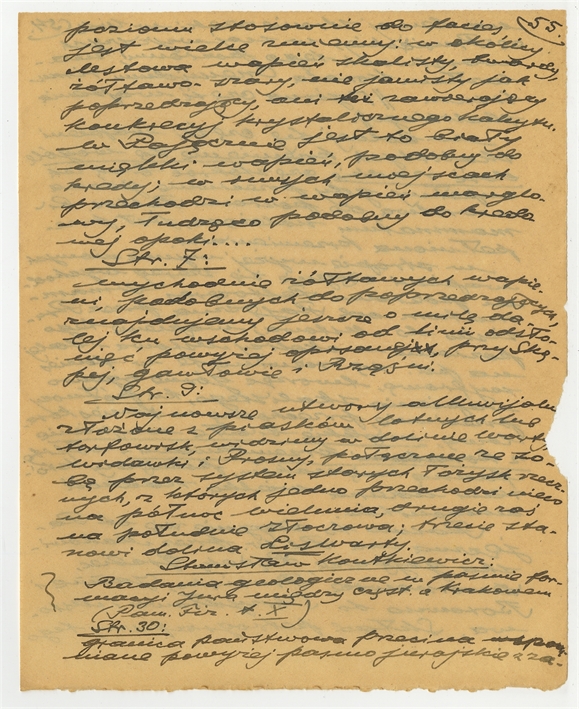 55.
poziom stosownie do facies
jest wielce zmienny: w okolicy
Mstowa wapień skalisty, twardy,
żółtawo-szary, nie jamisty jak
poprzedzający, ani też zawierający
konkrecyj krystalicznego kalcytu.
w Pajęcznie jest to biały
miękki wapień, podobny do
kredy; w innych miejscach
przechodzi w wapień marglo-
wy, łudząco podobny do kredo
wej opoki....
Str. 7:
wychodnie żółtawych wapie-
ni podobnych do poprzedzających,
znajdujemy jeszcze o milę da-
lej ku wschodowi od linii odsło-
nięć powyżej opisanej, przy Ską-
pej, Gawłowie i Rzęśni.
Str. 9:
Najnowsze utwory alluwijalne
złożone z piasków lotnych lub
torfowisk, widzimy w dolinie Warty,
Widawki i Prosny, połączone ze so-
bą przez system starych łożysk rzecz-
nych, z których jedno przechodzi nieco
na północ Wielunia, drugie zaś
na południe Złoczowa; trzecie sta-
nowi dolina Liswarty.
Stanisław Kontkiewicz:
Badania geologiczne w paśmie for-
macyi Jura między Częst. a Krakowem
(Pam. Fiz. t. X)
Str. 30:
granica państwowa przecina wspom-
niane powyżej pasmo jurajskie z za-